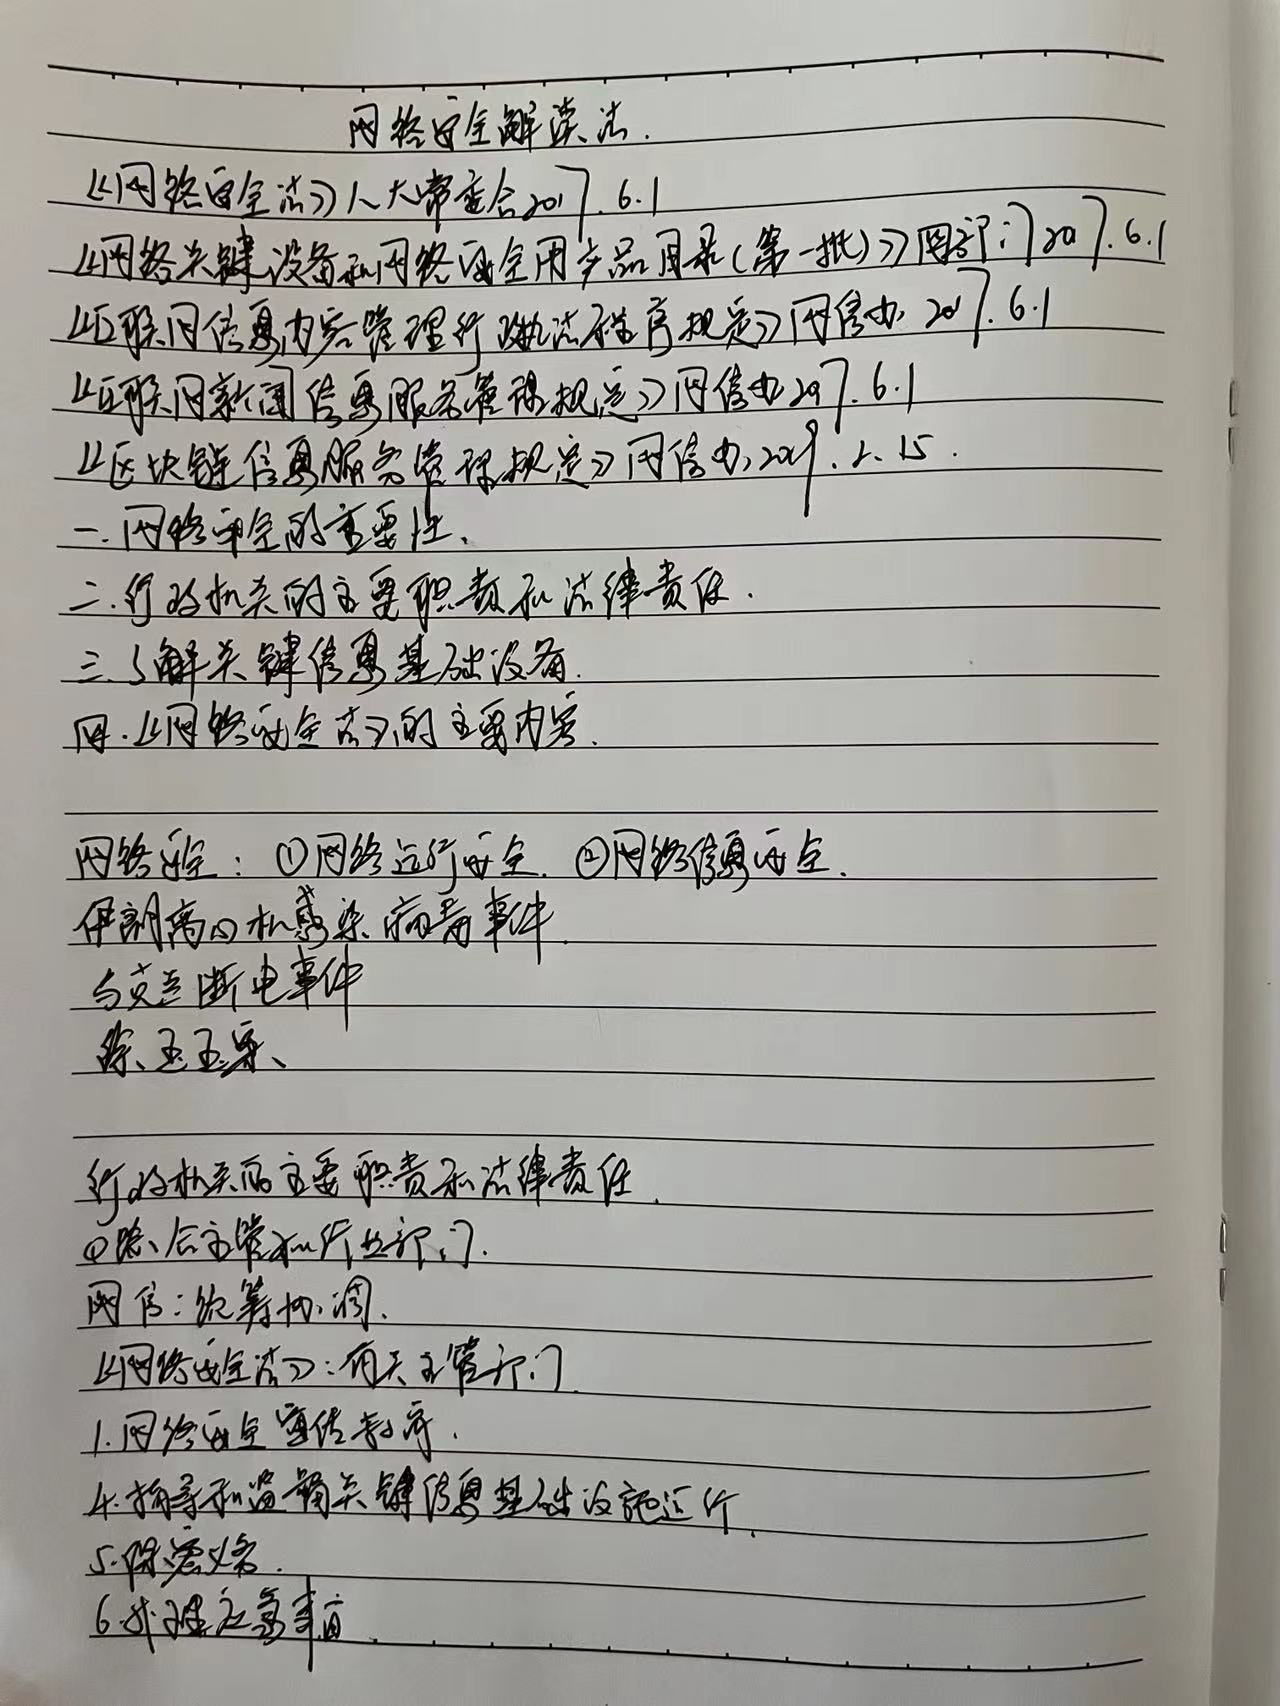 网络安全解读法.
《网络安全法》人大常委会2017.6.1
《网络关键设备和网络安全用产品目录(第一批)》四部门2017.6.1
《互联网信息内容管理行政执法程序规定》网信办2017.6.1
《互联网新闻信息服务管理规定》网信办2017.6.1
《区块链信息服务管理规定》网信办,2019.2.15.
一.网络安全的重要性、
二.行政机关的主要职责和法律责任.
三.了解关键信息基础设备.
四.《网络安全法》的主要内容.
网络安全:①网络运行安全.②网络信息安全.
伊朗离心机感染病毒事件.
乌克兰断电事件
徐玉玉案、
行政机关的主要职责和法律责任.
①综合主管和行业部门.
网信:统筹协调.
《网络安全法》:有关主管部门.
1.网络安全宣传教育.
4.指导和监督关键信息基础设施运行.
5.保密义务.
6.办理立案事宜